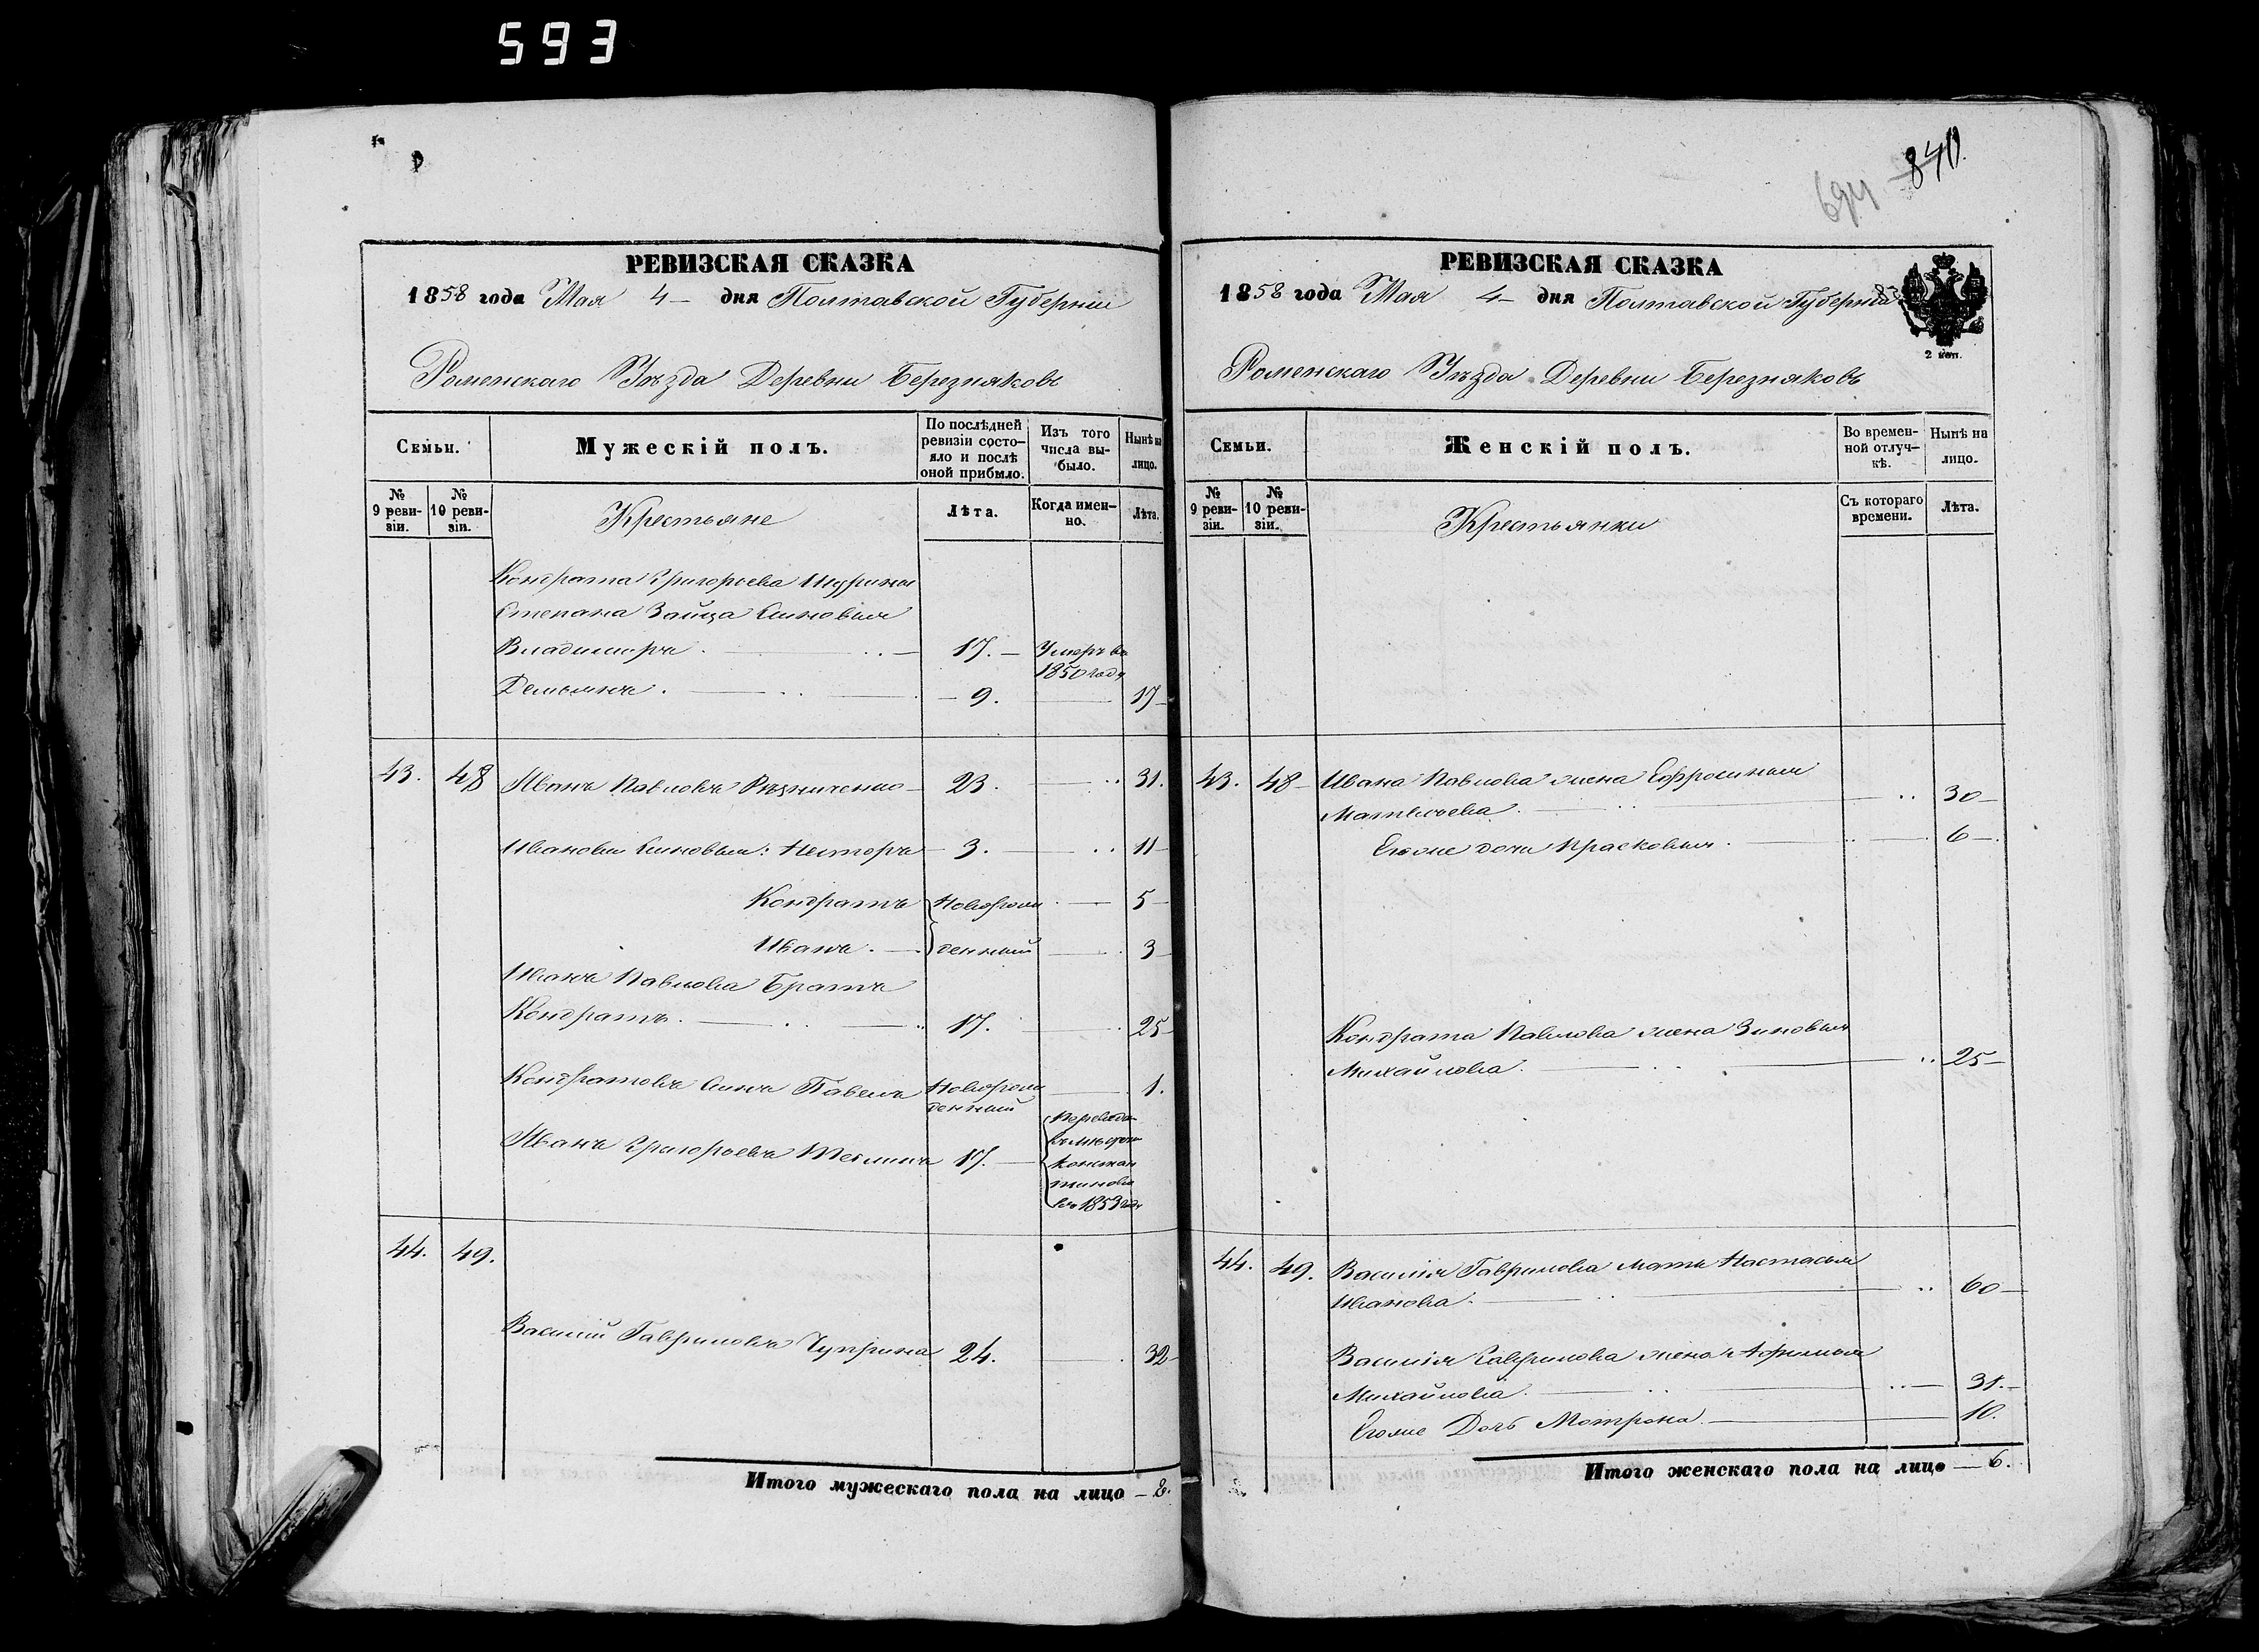 593
694 840.
РЕВИЗСКАЯ СКАЗКА
1858 года Мая 4 – дня Полтавской Губернии
Роменскаго Уѣзда Деревни Березняковъ
Семьи.
Мужескій полъ.
По послѣдней ревизіи состо-
яло и послѣ
оной прибыло.
Изъ того
числа вы-
было.
Нынѣ на
лицо.
№
9 реви-
зіи.
№
10 реви-
зіи.
Крестьяне
Лѣта.
Когда имен-
но.
Лѣта.
Кондрата Григорьева Шурины
Степана Зайца Сыновья
Владимиръ 17. Умеръ въ
1850 году
Демьянъ 9. 17
43. 48 Иванъ Павловъ Рѣзниченко 23. 31.
Ивановы Сыновья: Несторъ 3. 11
Кондратъ Новорож 5
Иванъ денный 3
Иванъ Павлова Братъ
Кондратъ. 17. 25
Кондратовъ Сынъ Павелъ Новорож 1.
денный
Иванъ Григорьевъ 17.
въ 1853 году
44. 49.
Василій Гавриловъ Чуприна 24. 32
Итого мужескаго пола на лицо – 8.
РЕВИЗСКАЯ СКАЗКА
1858 года Мая 4 – дня Полтавской Губерніи
2 коп.
Роменскаго Уѣзда Деревни Березняковъ
Семьи.
Женскій полъ.
Во времен-
ной отлуч-
кѣ.
Нынѣ на
лицо.
№
9 реви-
зіи.
№
10 реви-
зіи.
Крестьянки
Съ котораго
времени.
Лѣта.
43. 48 Ивана Павлова жена Ефросинья
Матвѣева 30
Егоже дочь Прасковья 6
Кондрата Павлова жена Зиновья
Михайлова 25
44. 49. Василія Гаврилова мать Настасья
Иванова 60
Василія Гаврилова жена Афимья
Михайлова 31.
Егоже Дочь Мотрона 10.
Итого женскаго пола на лицо – 6.